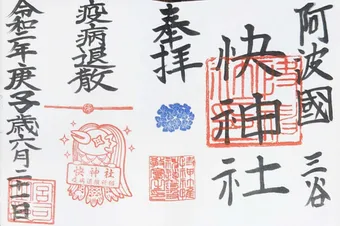 阿波國 三谷
快神社
奉拝
疫病退散
令和二年庚子歳六月二十一日
快神社